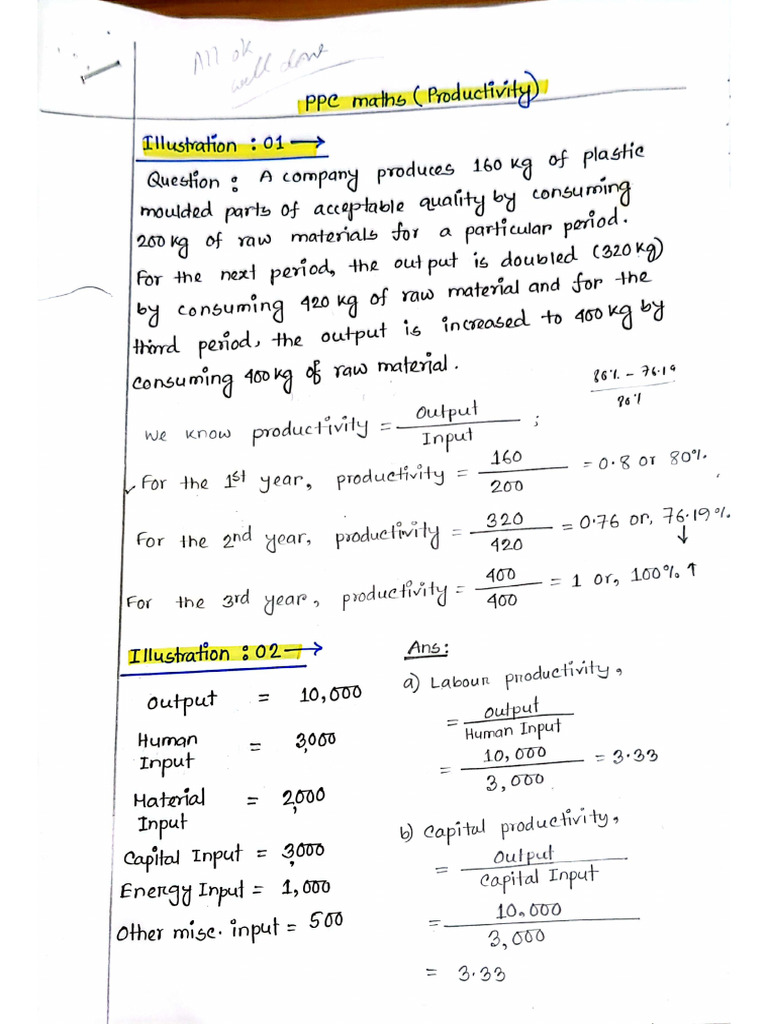 All ok
well done
PPC maths (Productivity)
Illustration : 01 →
Question : A company produces 160 kg of plastic
moulded parts of acceptable quality by consuming
200 kg of raw materials for a particular period.
For the next period, the output is doubled (320 kg)
by consuming 420 kg of raw material and for the
third period, the output is increased to 400 kg by
consuming 400 kg of raw material.
80% - 76.19
80%
We know productivity = Output / Input ;
✓ For the 1st year, productivity = 160 / 200 = 0.8 or 80%.
For the 2nd year, productivity = 320 / 420 = 0.76 or, 76.19%. ↓
For the 3rd year, productivity = 400 / 400 = 1 or, 100% ↑
Illustration : 02 →
Output = 10,000
Human Input = 3,000
Material Input = 2,000
Capital Input = 3,000
Energy Input = 1,000
Other misc. input = 500
Ans:
a) Labour productivity,
= Output / Human Input
= 10,000 / 3,000 = 3.33
b) Capital productivity,
= Output / Capital Input
= 10,000 / 3,000
= 3.33